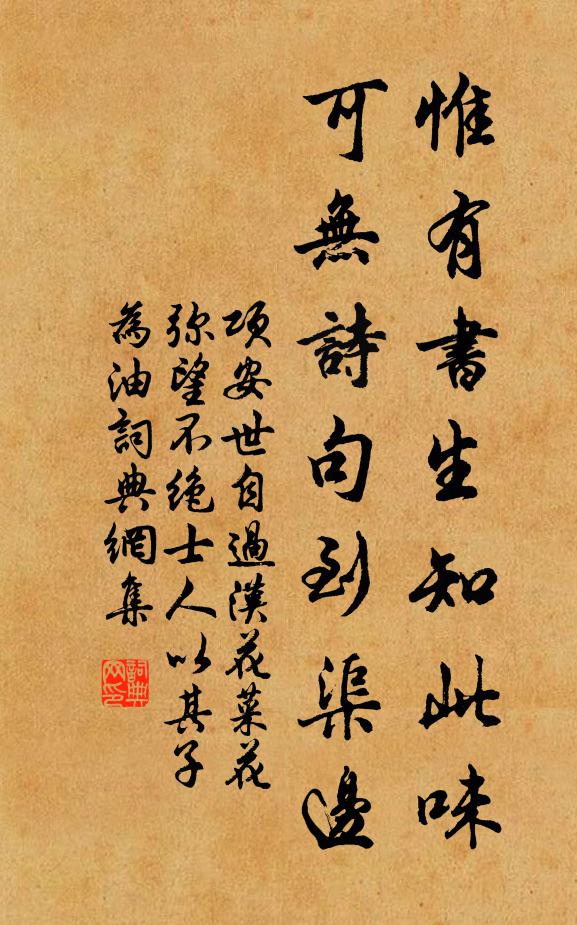 惟有書生知此味
可無詩句到渠邊
項安世自過漢花菜花
弥望不絶士人以其子
為油詞典網集
詞典网印